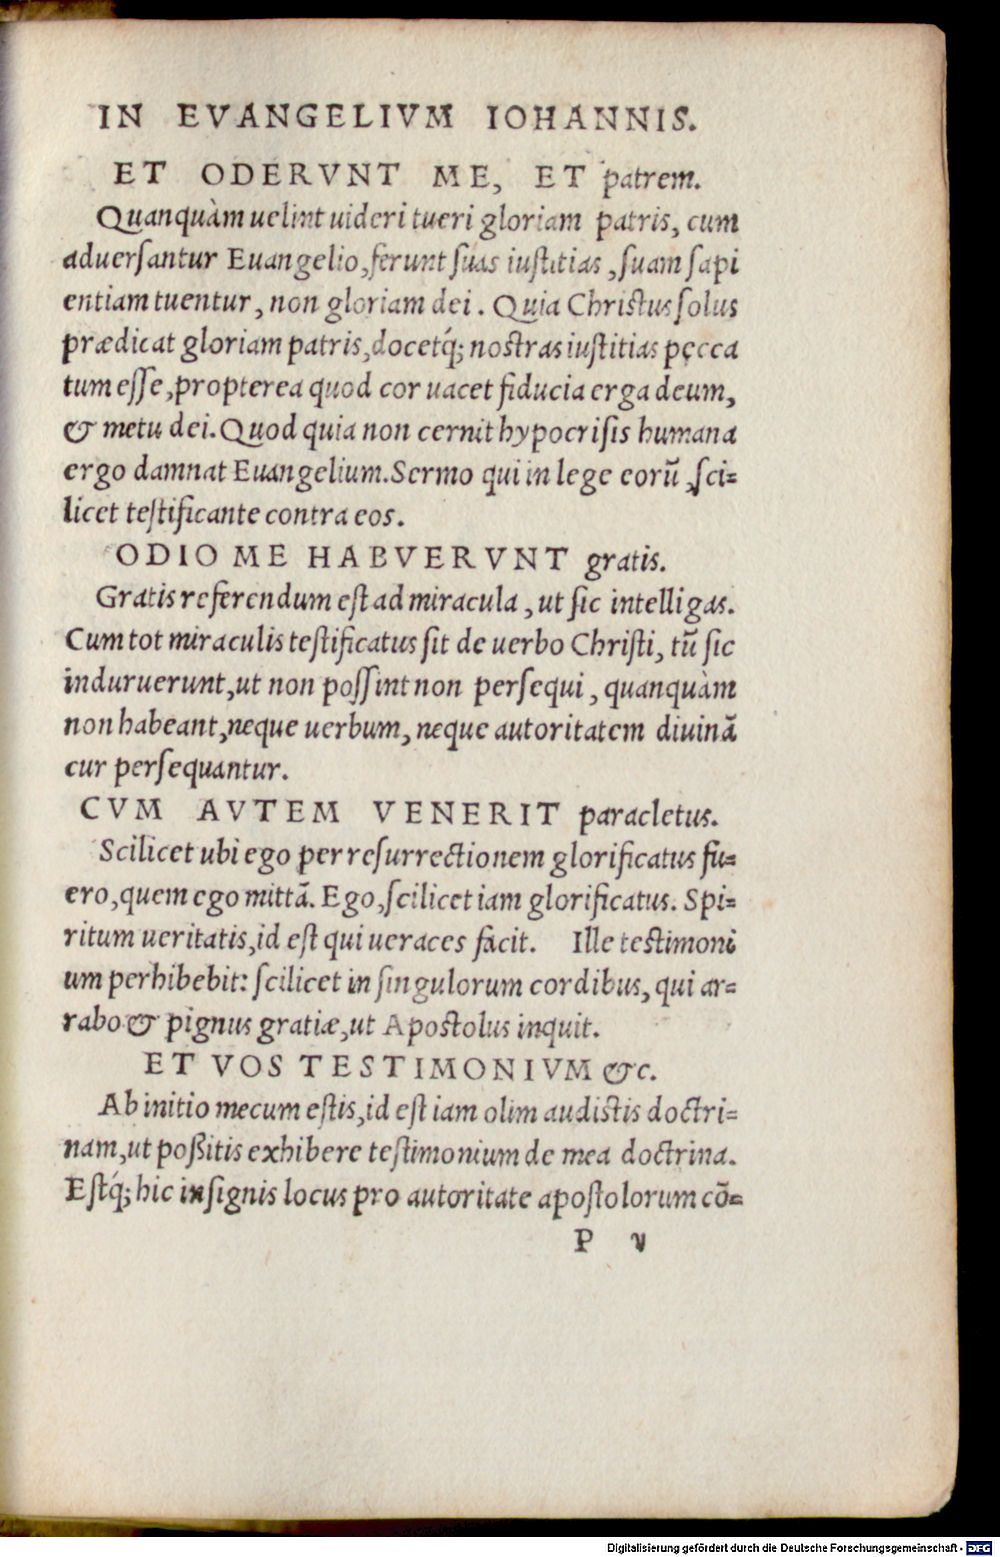 IN EVANGELIVM IOHANNIS.
ET ODERVNT ME, ET patrem.
Quanquàm uelint uideri tueri gloriam patris, cum
aduersantur Euangelio, ferunt suas iustitias, suam sapi
entiam tuentur, non gloriam dei. Quia Christus solus
prædicat gloriam patris, docetq́; nostras iustitias pecca
tum esse, propterea quod cor uacet fiducia erga deum,
& metu dei. Quod quia non cernit hypocrisis humana
ergo damnat Euangelium. Sermo qui in lege eorũ, sci-
licet testificante contra eos.
ODIO ME HABVERVNT gratis.
Gratis referendum est ad miracula, ut sic intelligas.
Cum tot miraculis testificatus sit de uerbo Christi, tũ sic
induruerunt, ut non possint non persequi, quanquàm
non habeant, neque uerbum, neque autoritatem diuinã
cur persequantur.
CVM AVTEM VENERIT paracletus.
Scilicet ubi ego per resurrectionem glorificatus fu-
ero, quem ego mittã. Ego, scilicet iam glorificatus. Spi-
ritum ueritatis, id est qui ueraces facit. Ille testimoni
um perhibebit: scilicet in singulorum cordibus, qui ar-
rabo & pignus gratiæ, ut Apostolus inquit.
ET VOS TESTIMONIVM &c.
Ab initio mecum estis, id est iam olim audistis doctri-
nam, ut poßitis exhibere testimonium de mea doctrina.
Estq́; hic insignis locus pro autoritate apostolorum cõ-
P v
Digitalisierung gefördert durch die Deutsche Forschungsgemeinschaft - DFG